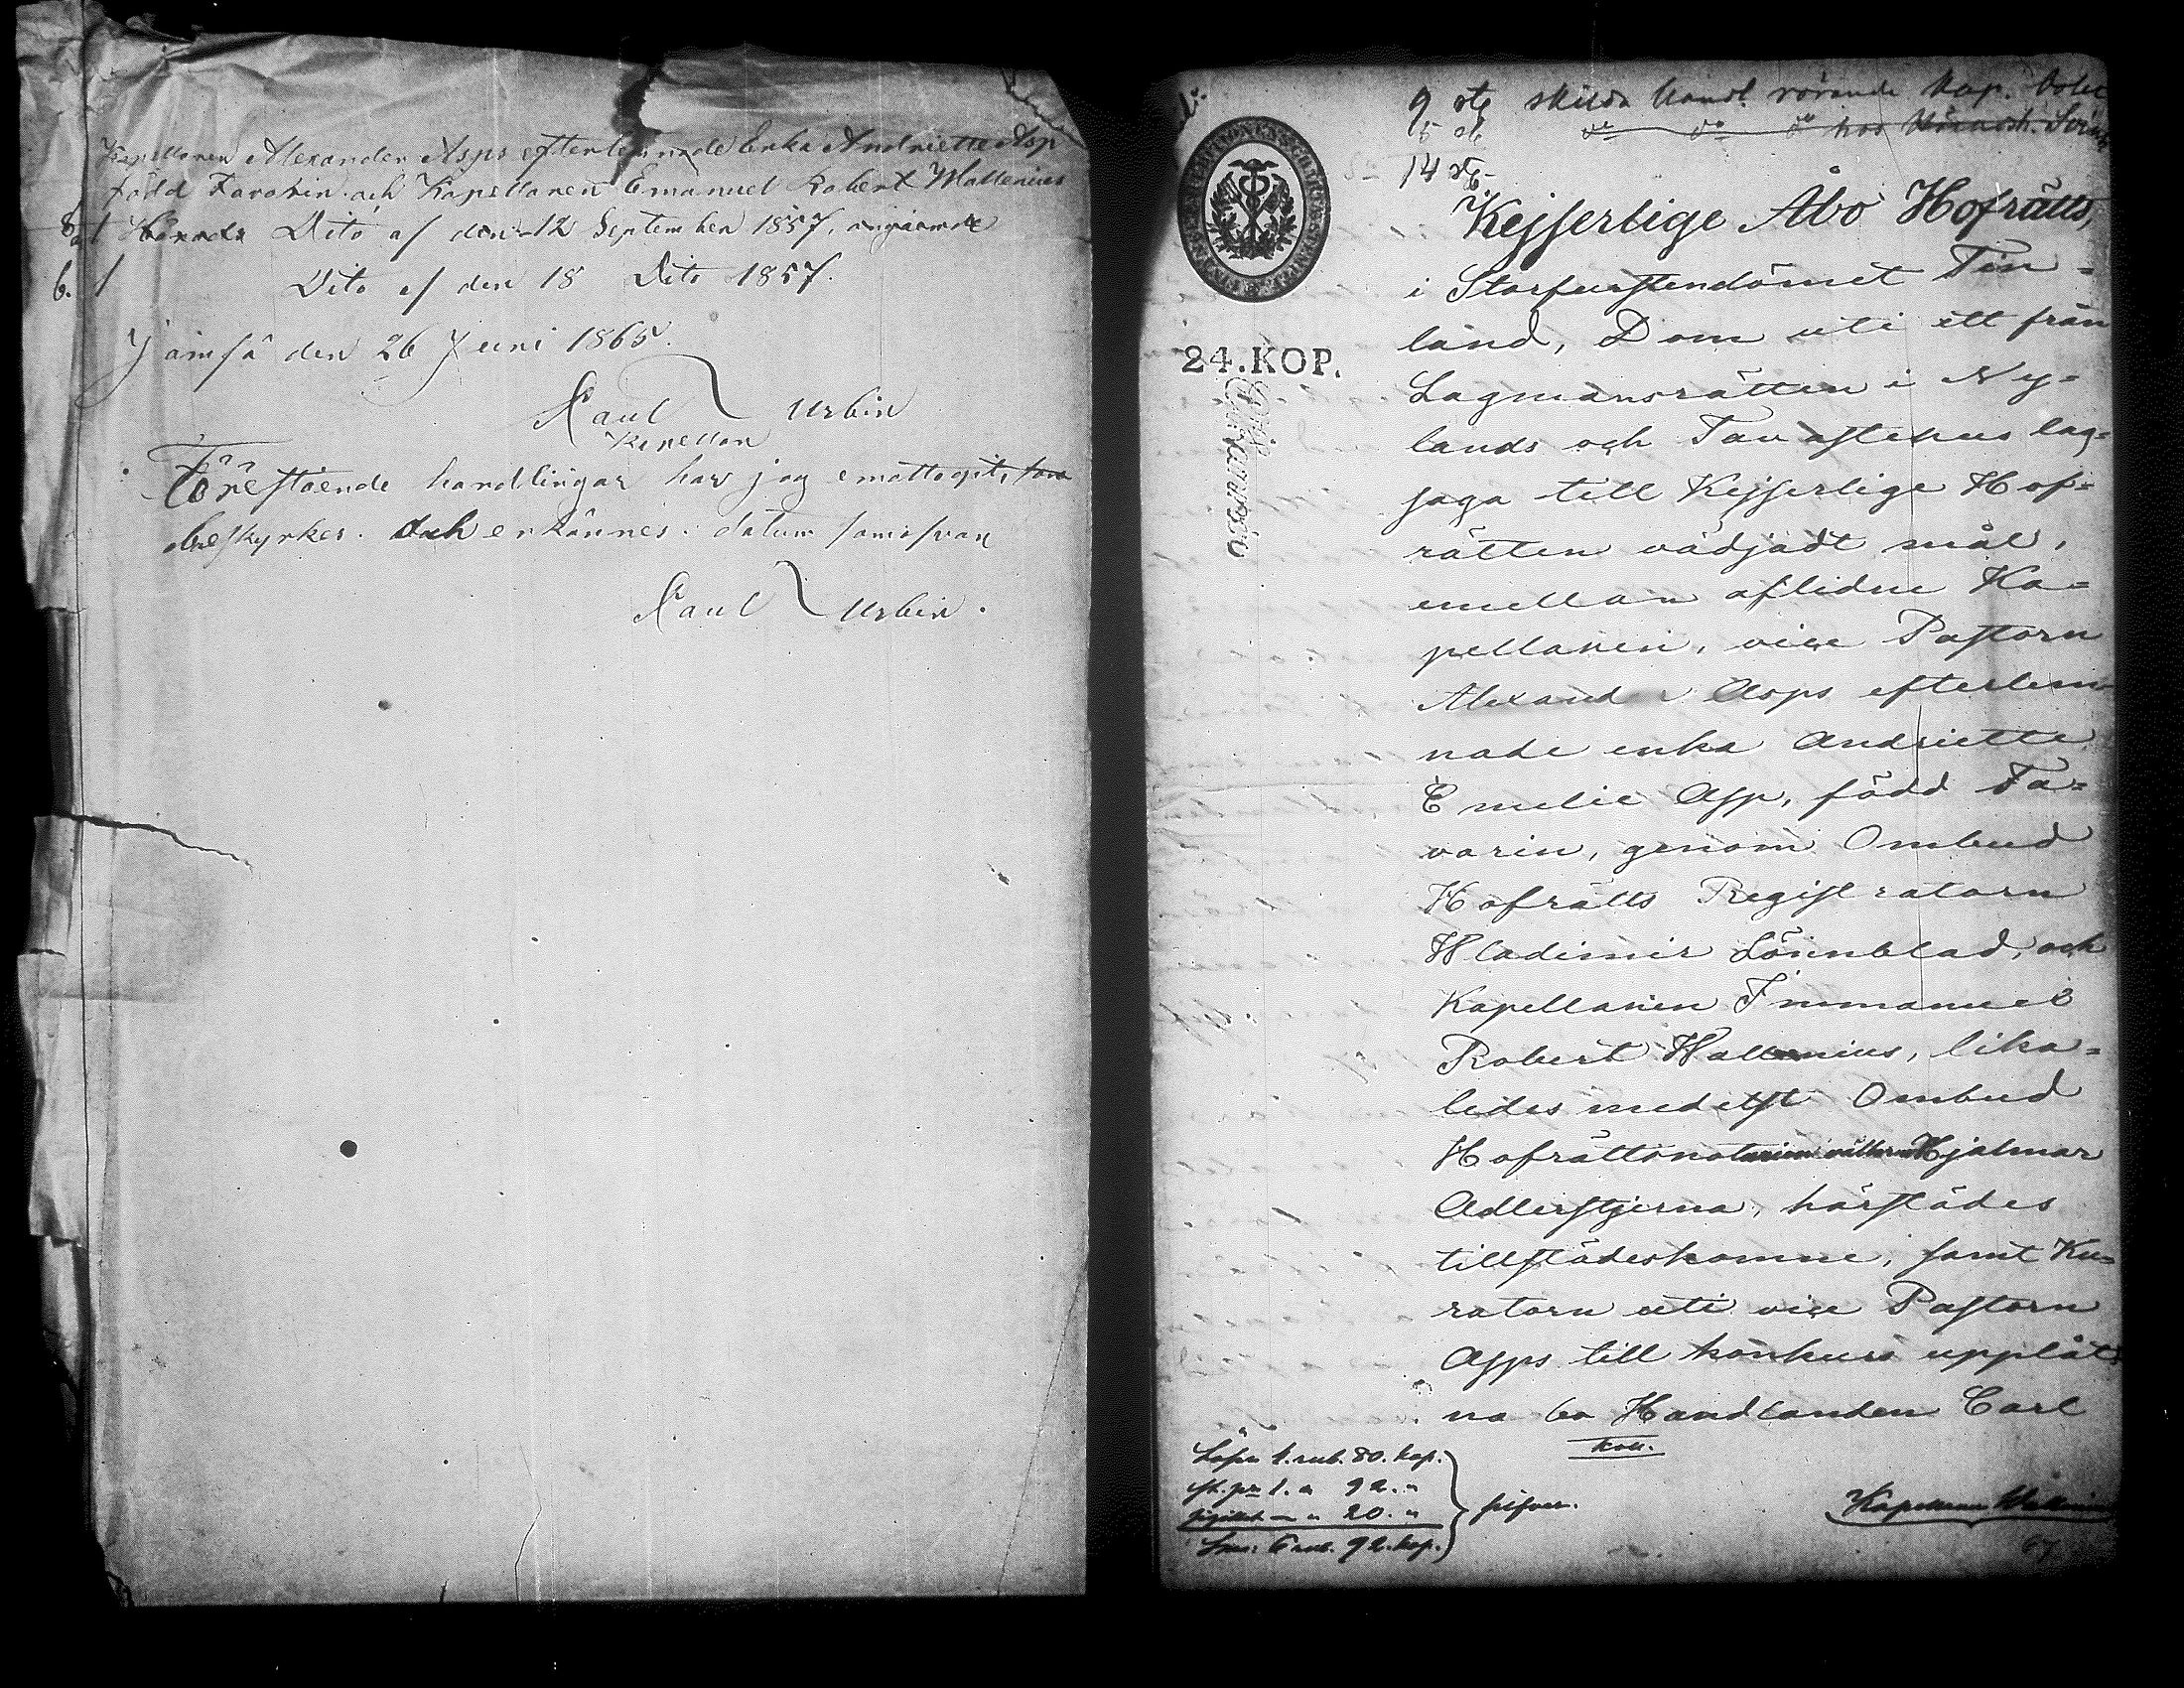 Kapellanen Alexander Asps efterlemnade Enka Andriette Asp
född Favorin och Kapellanen Emanuel Robert Wallenius
8 1 Dito af den 12 September 1857, angående
6. 1 Dito af den 18 Dito 1857.
Jämsä den 26 Juni 1865.
Paul Urbin
Kapellan
Föreståënde handlingar har jag emottagit, som
och erkännes. datum som ofvan
Paul Urbin.
9 st skilda handl. rörande Kap. bolet
5 st do do do hos
14 st
24.KOP.
Kejserlige Åbo Hofrätts,
i Storfurstendömet Fin=
land, Dom uti ett från
Lagmansrätten i Ny=
lands och Tavastehus lag=
saga till Kejserlige Hof=
rätten vädjadt mål,
emellan aflidne Ka=
pellanen, vice Pastorn
Alexander Asps efterlem-
nade enka Andriette
Emelie Asp, född Fa=
vorin, genom Ombud
Hofrätts Registratorn
Wladimir Lönnblad, och
Kapellanen Immanuel
Robert Wallenius, lika=
ledes medelst Ombud
Hofrättsnotarien Hjalmar
Adlerstjerna, härstädes
tillstädeskomne, samt Ku=
ratorn uti vice Pastorn
Asps till konkurs upplåt
na bo Handlanden Carl
Kou.
Lösen 4. rub. 80. kap.
1. " 92. "
20. "
Sm: 6 rub. 92. kop.
silfver.
Kapellanen Wallenius